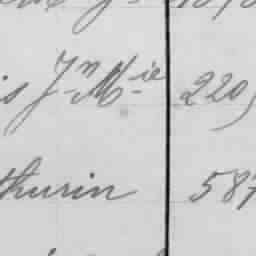 is Jn Mie 220
thurin 587